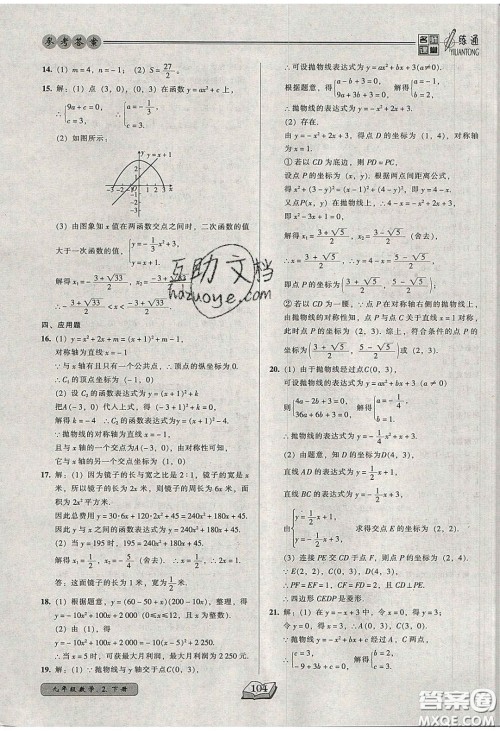 参考答案
名师课堂
一练通
YIJIANTONG
14. (1) m=4, n=-1; (2) S=27/2.
15. (1) 点 (3, 0), (0, 3) 在函数 y=ax²+c 上,
∴{9a+c=0, c=3. ∴{a=-1/3, c=3.
(2) 如图所示:
y=x+1
(3) 由图象知 x 值在两函数交点之间时, 二次函数的值
大于一次函数的值, {y=-1/3x²+3, y=x+1.
解得 x₁=-(3+√33)/2
∴-(3+√33)/2<x<
四、应用题
16. (1) y=x²+2x+m=(x+1)²+m-1,
对称轴为直线 x=-1.
∵与 x 轴有且只有一个公共点, ∴顶点的纵坐标为 0.
∴C₁ 的顶点坐标为 (-1, 0).
(2) 设 C₂ 的函数表达式为 y=(x+1)²+k,
把A(-3, 0) 代入上式, 得 (-3+1)²+k=0,
解得 k=-4. ∴C₂ 的函数表达式为 y=(x+1)²-4.
∴抛物线的对称轴为直线 x=-1,
且与 x 轴的一个交点为A(-3, 0), 由对称性可知,
它与 x 轴的另一个交点坐标为 (1, 0).
17. 解: (1) 因为镜子的长与宽之比是 2:1, 镜子的宽是 x
米, 所以镜子的长为 2x 米, 则镜子的面积为 2x² 平
方米.
因此总费用 y=30·6x+2x²·120+45=240x²+180x+45.
因此 y 与 x 之间的函数表达式为 y=240x²+180x+45.
(2) 当 y=195 时, 195=240x²+180x+45.
解得 x₁=1/2, x₂=-5/4 (舍去). ∴x=1/2, 2x=1.
答: 这面镜子的长为 1 米, 宽为 1/2 米.
18. (1) 根据题意, y=(60-50+x)(200-10x), 整理, 得
y=-10x²+100x+2 000 (0<x≤12,
且 x 为整数).
(2) 由 (1), 得 y=-10x²+100x+2 000=-10(x-5)²+2 250.
∴当 x=5 时, 可获最大月利润, 最大月利润是 2 250 元.
19. 解: (1) ∵抛物线与 y 轴交于点C(0, 3),
∴可设抛物线表达式为 y=ax²+bx+3 (a≠0).
根据题意, 得 {a-b+3=0, 9a+3b+3=0. 解得{a=-1, b=2.
∴抛物线的表达式为 y=-x²+2x+3.
(2) 存在.
由 y=-x²+2x+3, 得点 D 的坐标为 (1, 4), 对称轴
为 x=1.
①若以 CD 为底边, 则 PD=PC,
设点 P 的坐标为 (x, y). 根据两点间距离公式,
得 x²+(3-y)²=(x-1)²+(4-y)², 即 y=4-x.
又点P(x, y) 在抛物线上, ∴4-x=-x²+2x+3.
解得 x₁=(3+√5)/2, x₂=(3-√5)/2 (舍去).
∴x=(3+√5)/2. ∴y=4-x=(5-√5)/2,
即点 P 的坐标为 ((3+√5)/2, (5-√5)/2).
②若以 CD 为一腰, ∵点 P 在对称轴右侧的抛物线上,
由抛物线的对称性知, 点 P 与点 C 关于直线 x=1 对称,
此时点 P 的坐标为 (2, 3). 综上, 符合条件的点 P 的
坐标为 ((3+√5)/2, (5-√5)/2) 或 (2, 3).
20. 解: (1) 由于抛物线经过点C(0, 3),
可设抛物线的表达式为 y=ax²+bx+3 (a≠0).
则{4a-2b+3=0, 36a+6b+3=0. 解得{a=-1/4, b=1.
∴抛物线的表达式为 y=-1/4x²+x+3.
(2) 由题意, 可知点 D 坐标为D(4, 3),
直线 AD 的表达式为 y=1/2x+1,
直线BC的表达式为 y=-1/2x+3.
由{y=1/2x+1, y=-1/2x+3. 求得交点 E 的坐标为 (2, 2).
(3) 连接 PE 交 CD 于点 F, 则点 P 的坐标为 (2, 4).
∵E(2, 2), C(0, 3), D(4, 3),
∴PF=EF=1, CF=FD=2, 且 CD⊥PE.
∴四边形 CEDP 是菱形.
21. 解: (1) 在 y=-x+3 中, 令 x=0, 得 y=3;
令 y=0, 得 x=3. ∴A(3, 0), B(0, 3).
由抛物线 y=-x²+bx+c 经过 A, B 两点, 得
{-9+3b+c=0, c=3. ∴{b=2, c=3.
互助文档
hezuoye.com
九年级数学.2.下册
104
答案圈
MXQE.COM